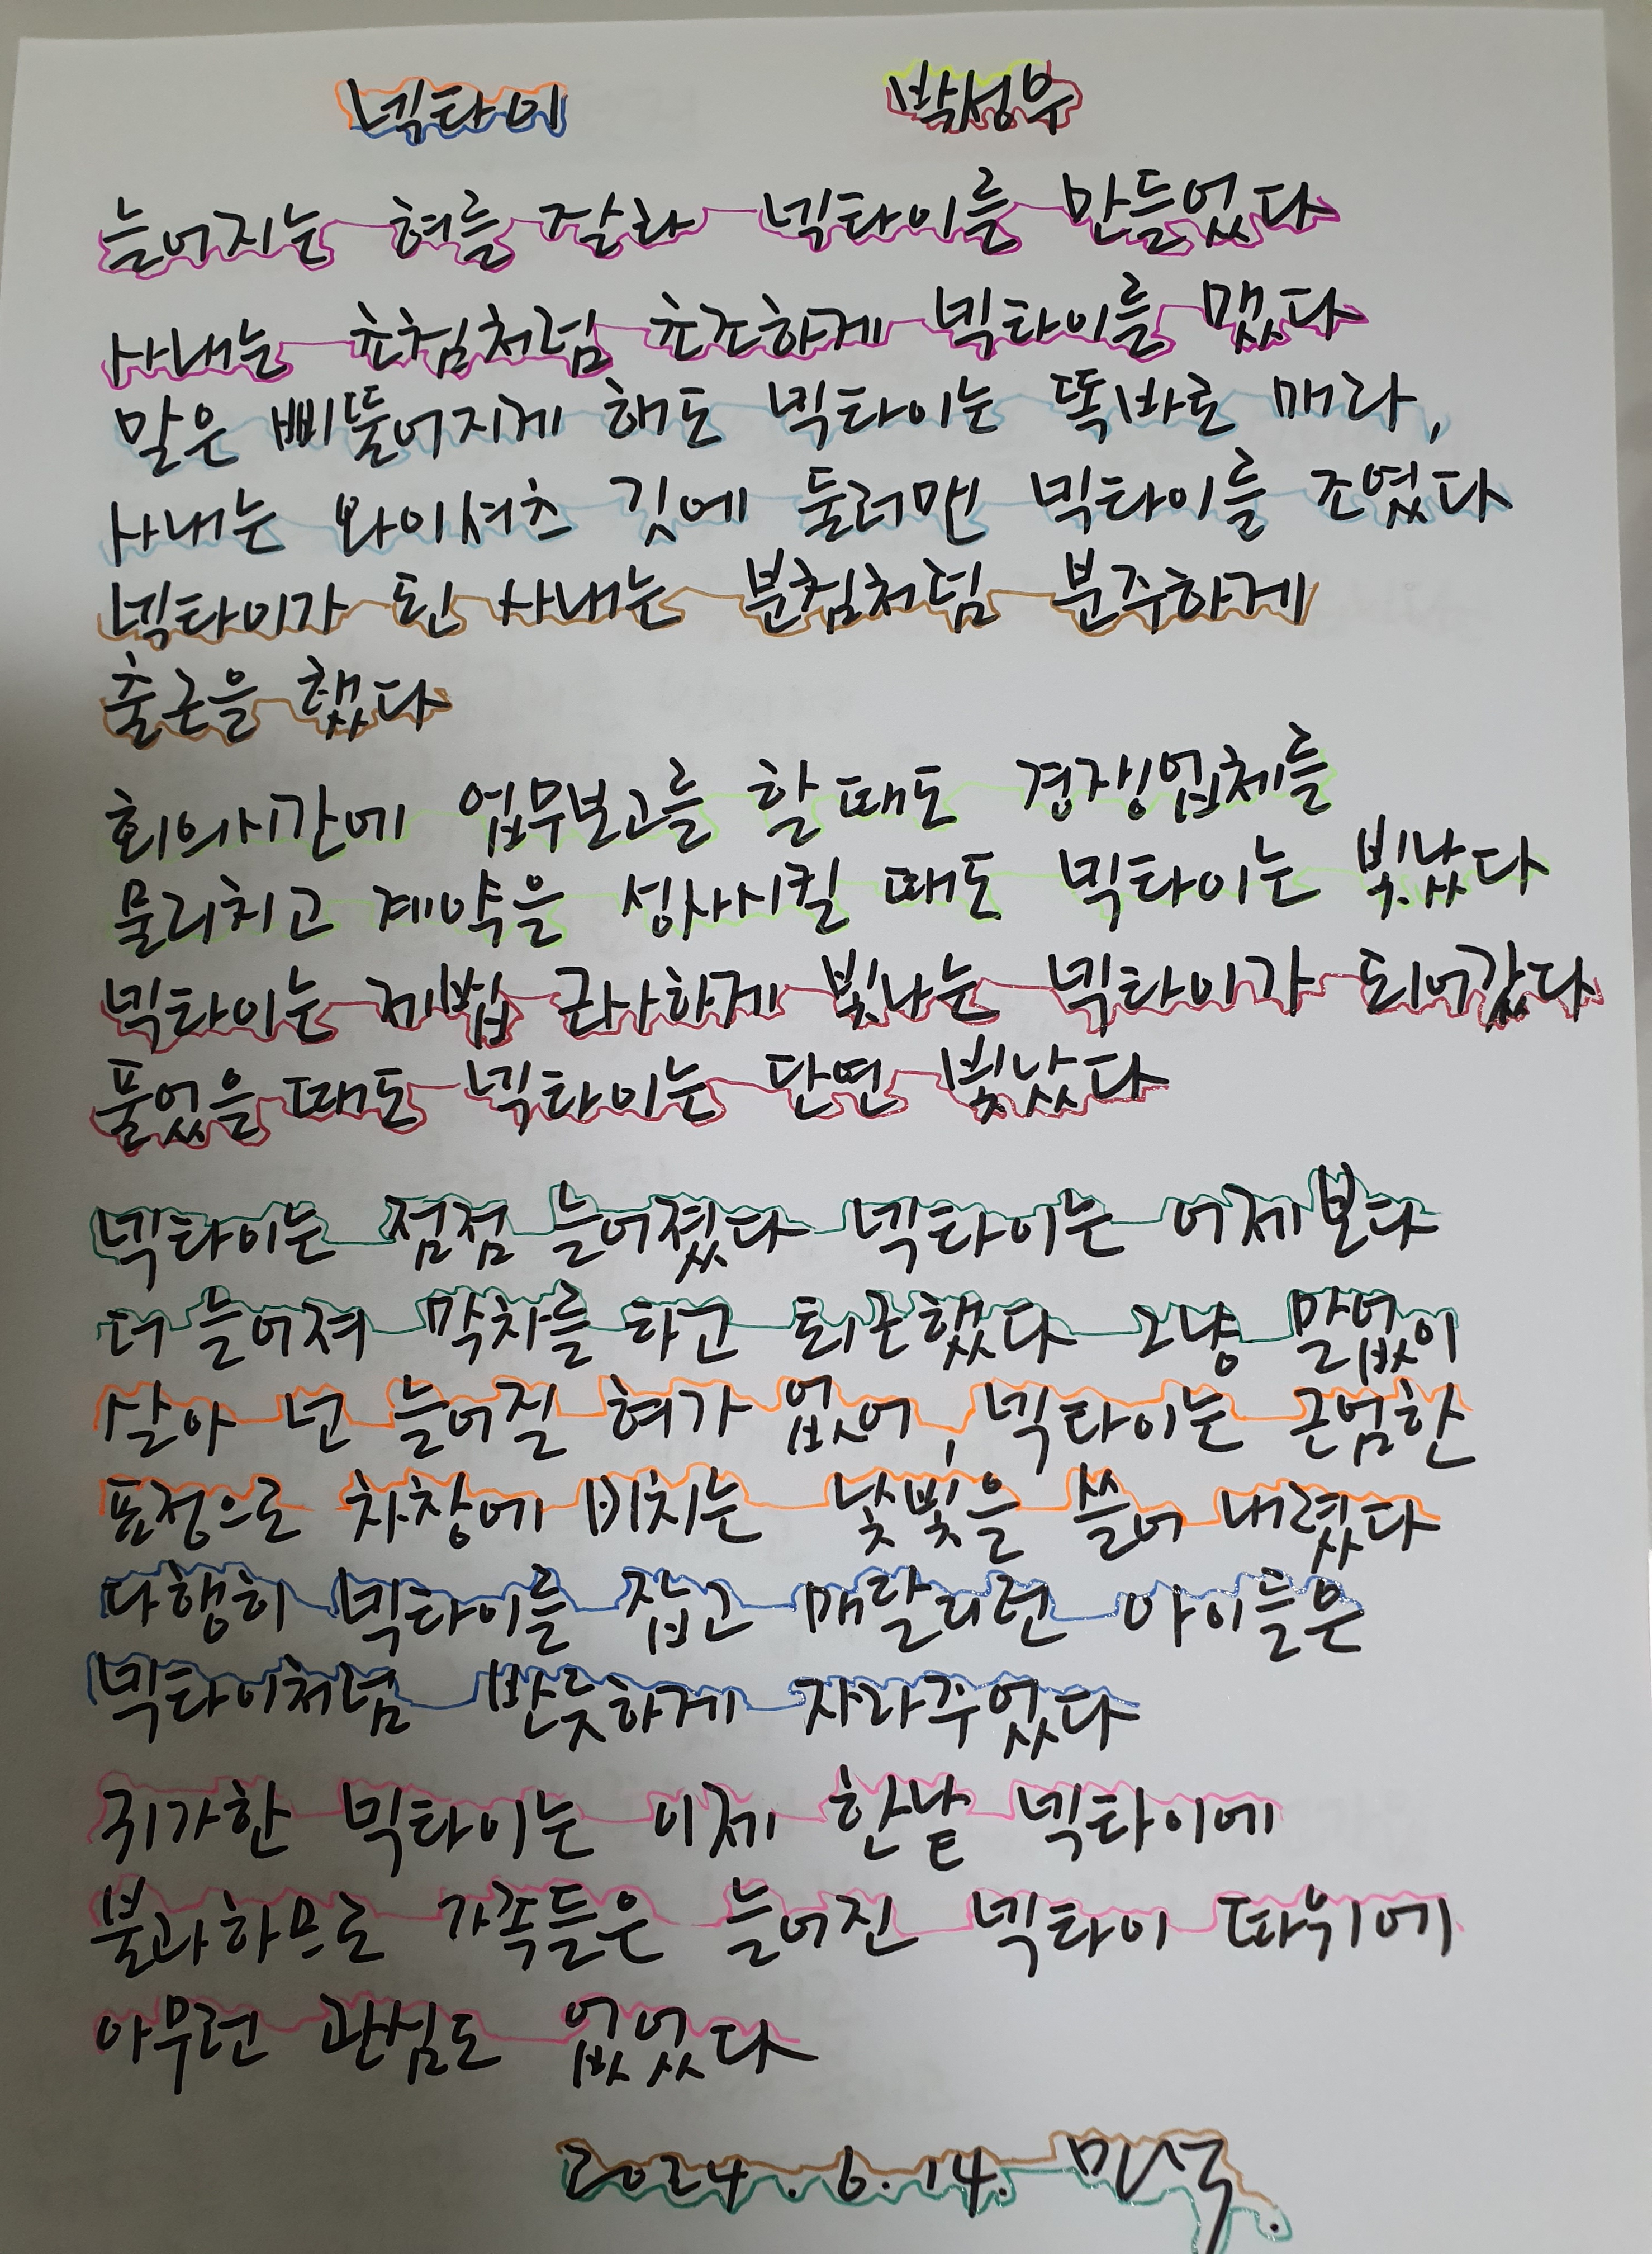 넥타이 박성우
늘어지는 혀를 잘라 넥타이를 만들었다
사내는 초침처럼 초조하게 넥타이를 맸다
말은 삐뚤어지게 해도 넥타이는 똑바로 매라,
사내는 와이셔츠 깃에 둘러맨 넥타이를 조였다
넥타이가 된 사내는 분침처럼 분주하게
출근을 했다
회의시간에 업무보고를 할 때도 경쟁업체를
물리치고 계약을 성사시킬 때도 넥타이는 빛났다
넥타이는 제법 근사하게 빛나는 넥타이가 되어갔다
풀었을 때도 넥타이는 단연 빛났다
넥타이는 점점 늘어졌다 넥타이는 어제보다
더 늘어져 막차를 하고 퇴근했다 그냥 말없이
살아 넌 늘어질 혀가 없어, 넥타이는 근엄한
표정으로 차창에 비치는 낯빛을 쓸어 내렸다
다행히 넥타이를 잡고 매달리던 아이들은
넥타이처럼 반듯하게 자라주었다
귀가한 넥타이는 이제 한낱 넥타이에
불과하므로 가족들은 늘어진 넥타이 따위에
아무런 관심도 없었다
2024. 6. 14.